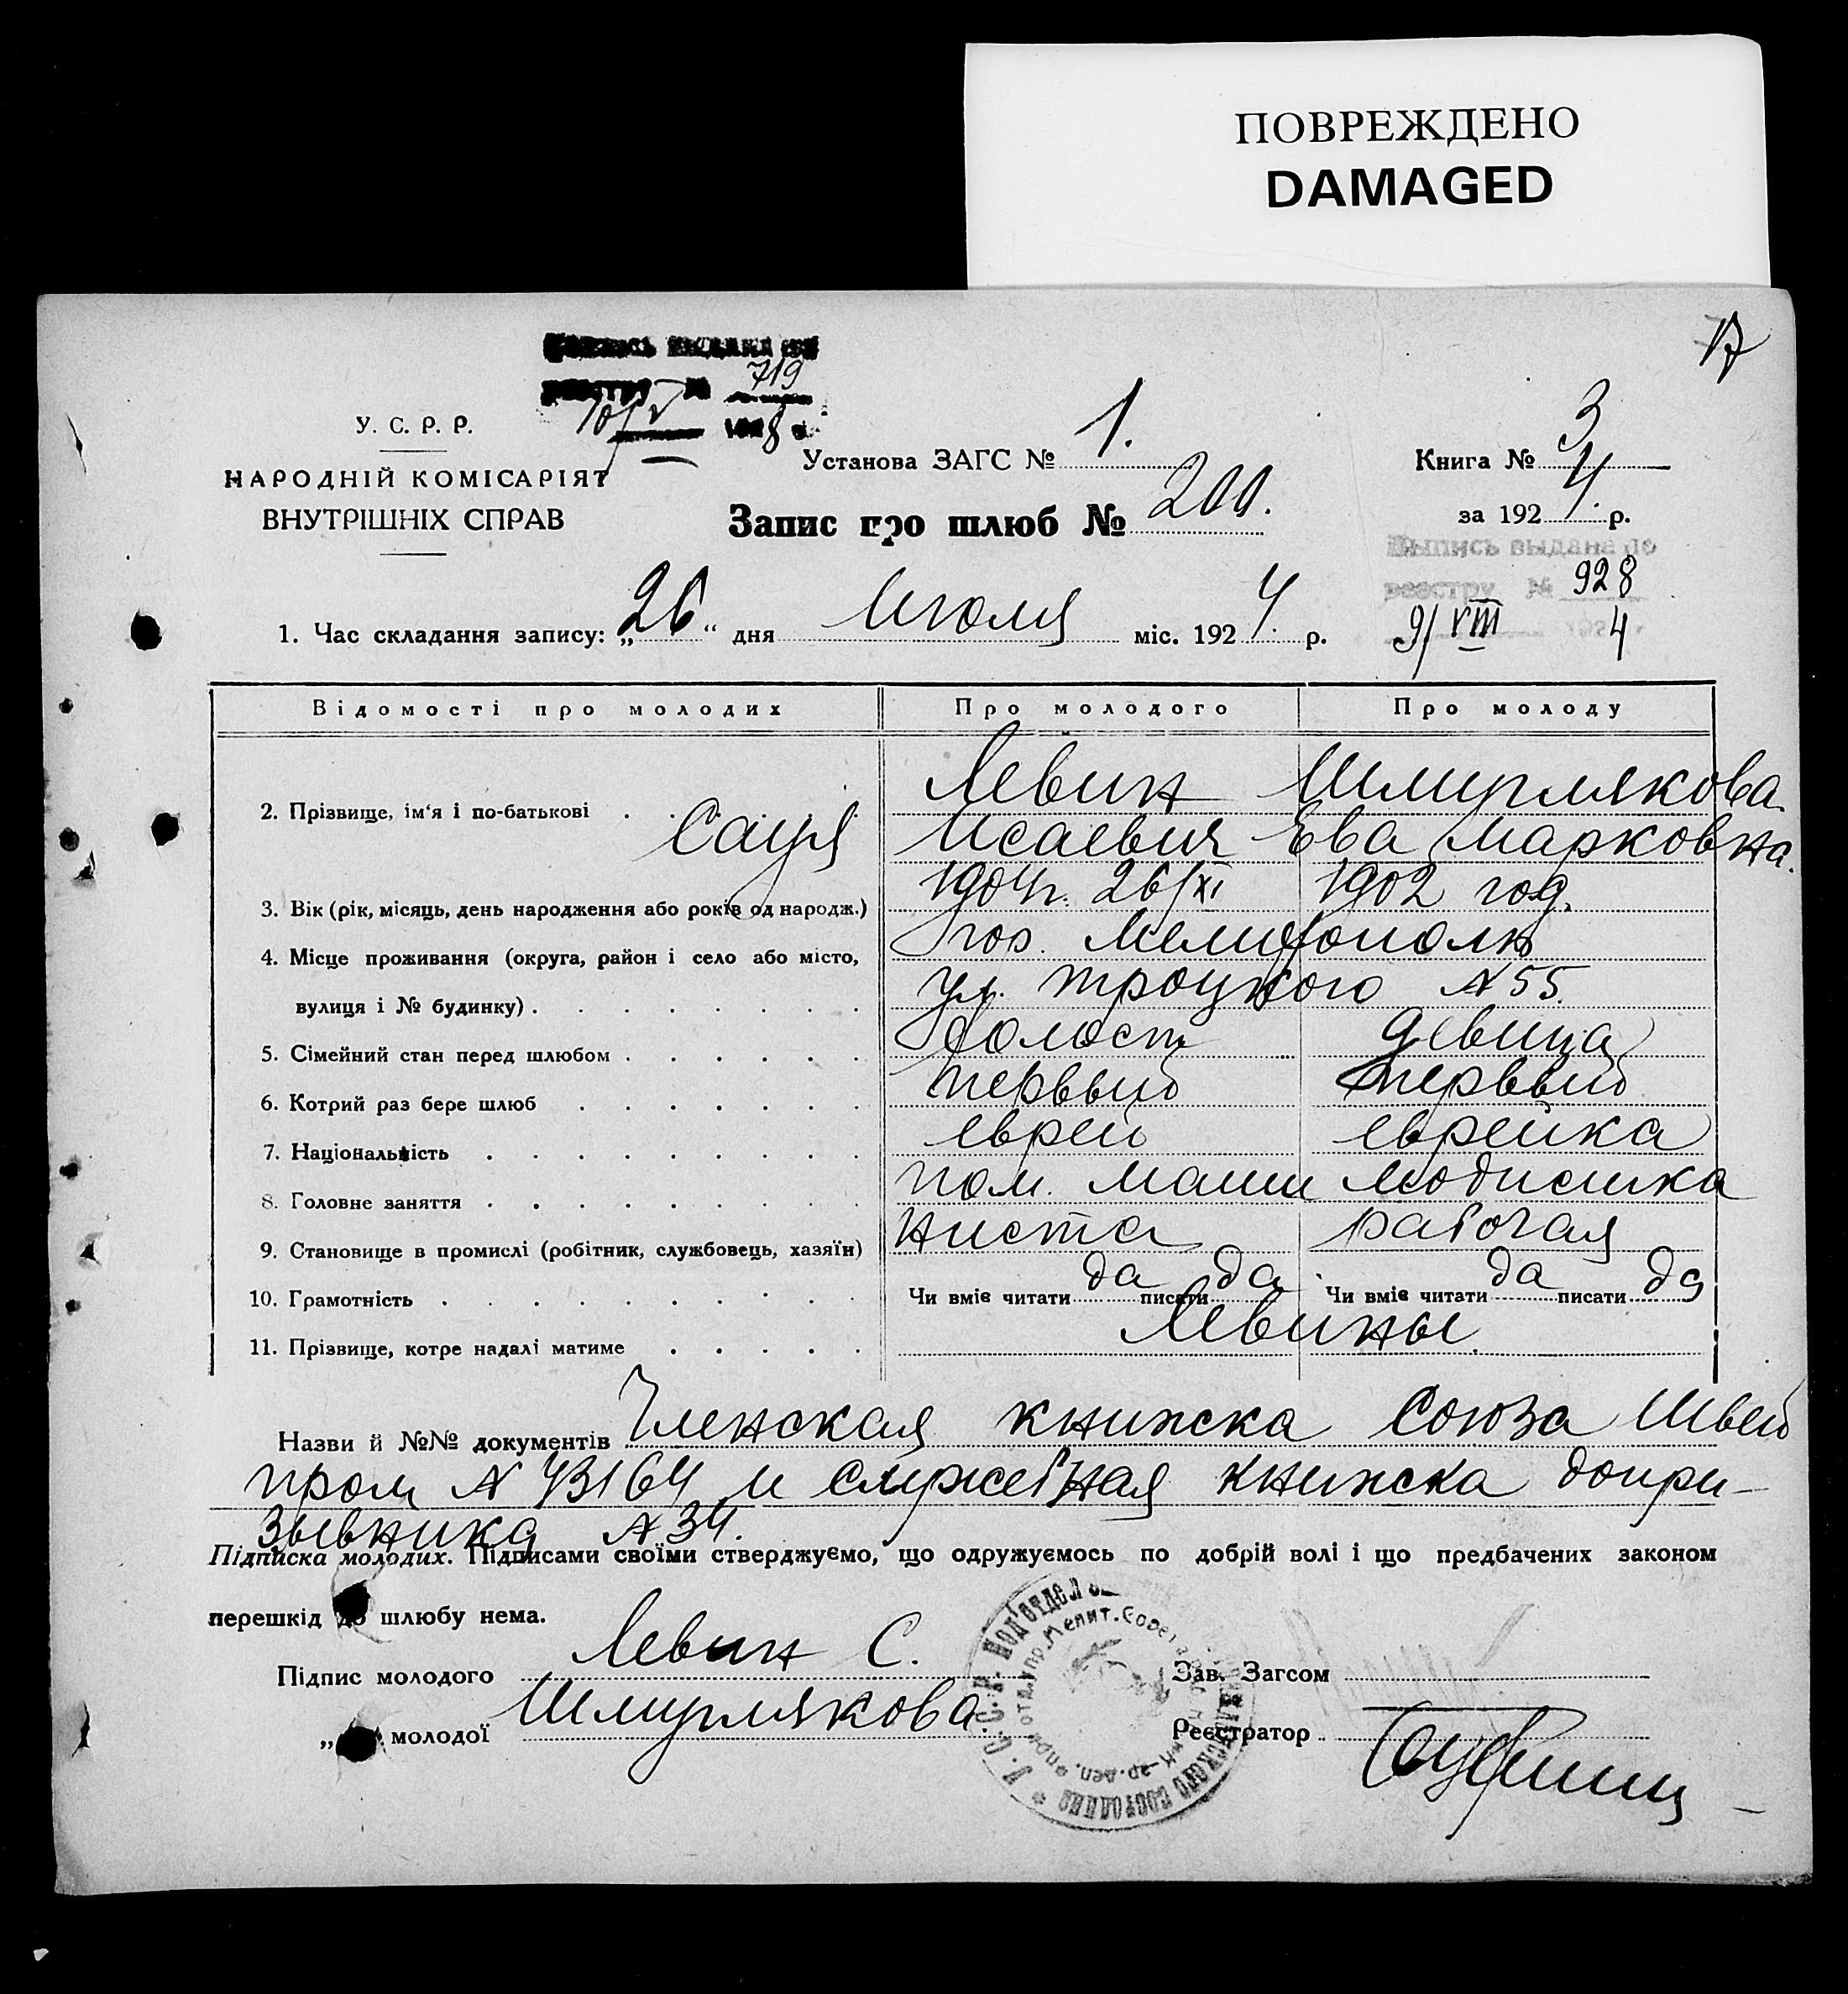 ПОВРЕЖДЕНО
DAMAGED
17
719
10/V 1928 г.
У. С. Р. Р.
НАРОДНІЙ КОМІСАРІЯТ
ВНУТРІШНІХ СПРАВ
Установа ЗАГС № 1.
Книга № 3
за 1924. р.
Запис про шлюб № 200.
Выпись выдана по
реестру № 928
9/VIII 1924
1. Час складання запису: „26“ дня Июля міс. 1924. р.
Відомості про молодих Про молодого Про молоду
2. Прізвище, ім'я і по-батькові Левин Шмуклякова
Исаевич Ева Марковна.
3. Вік (рік, місяць, день народження або років од народж.) 1904г. 26/XI 1902 год.
4. Місце проживання (округа, район і село або місто, гор. Мелитополь
вулиця і № будинку) ул. Троцкого № 55.
5. Сімейний стан перед шлюбом холост девица
6. Котрий раз бере шлюб первый первый
7. Національність еврей еврейка
8. Головне заняття пом. маши модистка
9. Становище в промислі (робітник, службовець, хазяїн) ниста рабочая
10. Грамотність Чи вміє читати да писати да Чи вміє читати да писати да
11. Прізвище, котре надалі матиме Левины.
Назви й №№ документів Членская книжка Союза Швей
пром № 43164 и служебная книжка допри-
зывника № 34.
Підписка молодих. Підписами своїми стверджуємо, що одружуємось по добрій волі і що предбачених законом
перешкід до шлюбу нема.
Підпис молодого Левин С.
Зав. Загсом
„ молодої
Реєстратор